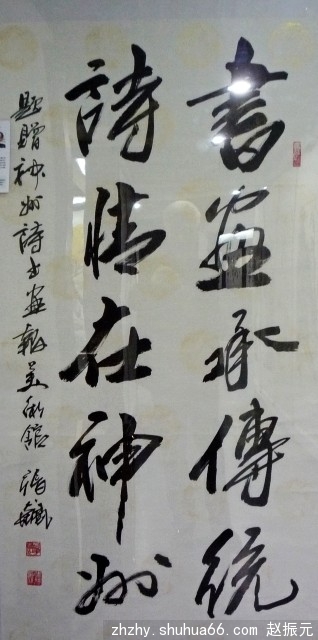 書畫承傳統
詩情在神州
題贈神州詩書畫報美術館
zhzhy.shuhua66.com 赵振元